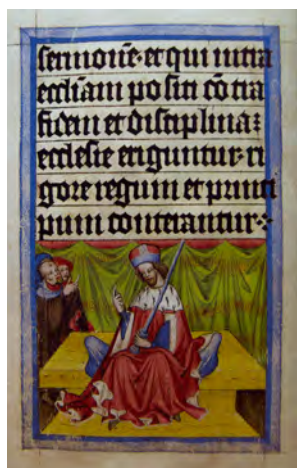 sermone· et qui intra
eccl̄iam positi cōtra
fidem et disciplinaꝫ
ecclesie eriguntur· ri
gore regum et princi
pum conterantur·:·